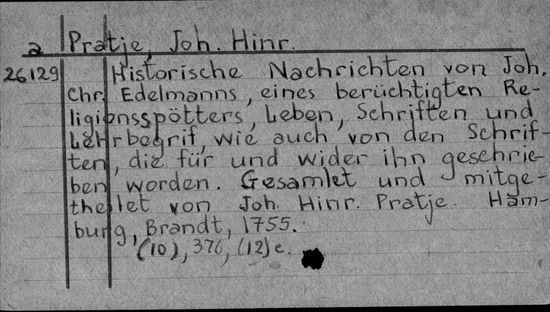 a Pratje, Joh. Hinr.
26129 Historische Nachrichten von Joh.
Chr. Edelmanns, eines berüchtigten Re-
ligionsspötters, Leben, Schriften und
Lehrbegrif, wie auch von den Schrif-
ten, die für und wider ihn geschrie-
ben worden. Gesamlet und mitge-
theilet von Joh. Hinr. Pratje. Ham-
burg, Brandt, 1755.
(10), 376, (12) c.